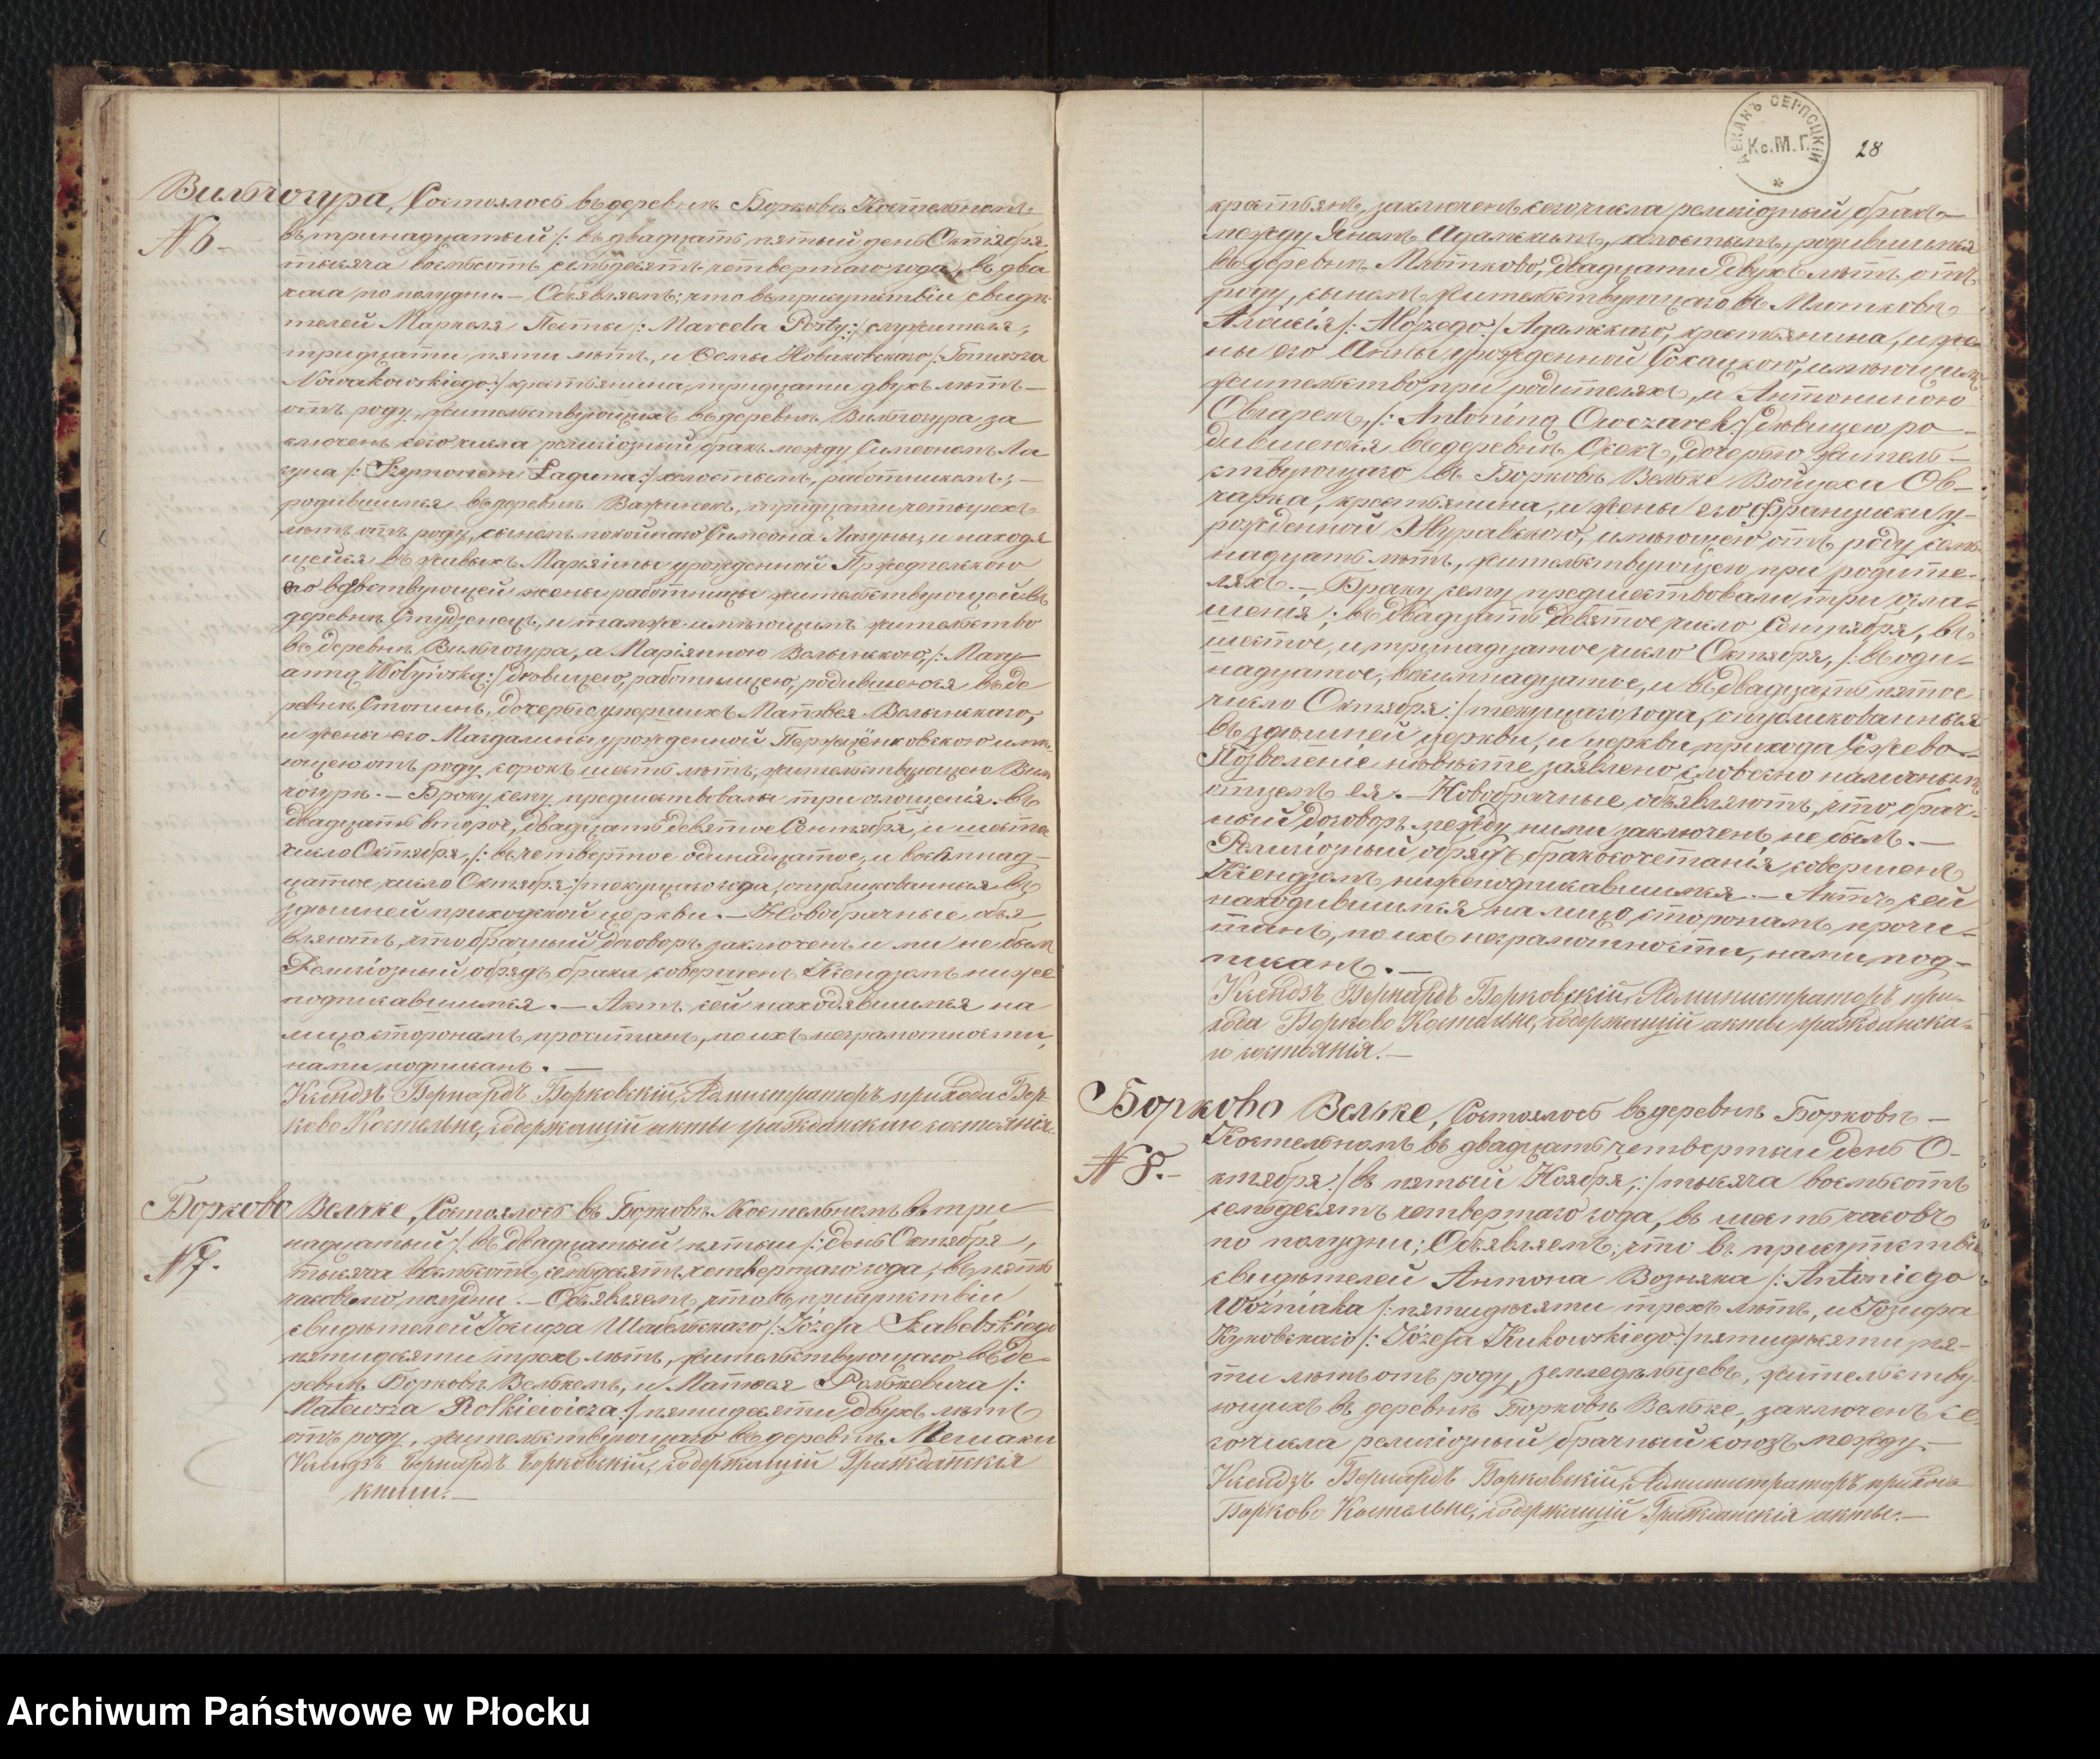 Вильчогура, Состоялось въ деревнѣ Борковѣ Костельномъ
№ 6.
въ тринадцатый /: въ двадцать пятый день Октября
тысяча восемьсотъ семьдесятъ четвертаго года, въ два
часа по полудни. — Объявляемъ; что въ присутствіи свидѣ-
телей Маркеля Песты /: Marcela Pesty:/ служителя,
тридцати пяти лѣтъ, и Ѳомы Новаковскаго /: Tomasza
Nowakowskiego:/ крестьянина, тридцати двухъ лѣтъ —
отъ роду, жительствующихъ въ деревнѣ Вильчогура, за
ключенъ сего числа религіозный бракъ между Симеономъ Ла
гуна /: Szymonem Laguna:/ холостымъ, работникомъ; —
родившимся въ деревнѣ тридцати четырехъ
лѣтъ отъ роду, сыномъ покойнаго Симеона Лагуны, и находя
щейся въ живыхъ Маріянны урожденной
его вдовствующей жены работницы жительствующей въ
деревнѣ Студзенецъ, и также имѣющимъ жительство
въ деревнѣ Вильчогура, а Маріянною Волынскою, /: Mary
anną Wołyńską:/ дѣвицею, работницею, родившеюся въ де
ревнѣ Стопинъ, дочерью умершихъ Матвея Волынскаго,
и жены его Магдалины урожденной имѣ-
ющею отъ роду сорокъ шесть лѣтъ, жительствующею Виль
чогурѣ. — Браку сему предшествовали три оглашенія. въ
двадцать второе, двадцать девятое Сентября, и шестое
число Октября, /: въ четвертое одинадцатое, и восемнад-
цатое число Октября:/ текущаго года, опубликованныя въ
здѣшней приходской церкви. — Новобрачные объя
вляютъ, что брачный договоръ заключенъ ими не былъ
Религіозный обрядъ брака совершенъ Ксендзомъ ниже
подписавшимся. — Актъ сей находившимся на
лицо сторонамъ прочитанъ, по ихъ неграмотности,
нами подписанъ. —
Ксендзъ Бернардъ Борковскій, Администраторъ прихода Бор-
ково Костельне, содержащій акты гражданскаго состоянія.
Борково Вельке, Состоялось въ Борковѣ Костельномъ въ три
№ 7.
надцатый /: въ двадцатый пятый /: день Октября,
тысяча восемьсотъ семьдесятъ четвертаго года, въ пять
часовъ по полудни. — Объявляемъ, что въ присутствіи
свидѣтелей Іосифа Шабельскаго /: Józefa Szabelskiego
пятидесяти трехъ лѣтъ, жительствующаго въ де-
ревнѣ Борковѣ Велькемъ, и Матвея Ролькевича /:
Mateusza Rolkiewicza:/ пятидесяти двухъ лѣтъ
отъ роду, жительствующаго въ деревнѣ
Ксендзъ Бернардъ Борковскій, содержащій Гражданскія
книги. —
ДЕКАНЪ СЕРПСЦКІЙ
Кс. М. Г.
28
крестьянъ, заключенъ сего числа религіозный бракъ —
между Яномъ Адамскимъ, холостымъ, родившимся
въ деревнѣ Млотково, двадцати двухъ лѣтъ отъ
роду, сыномъ жительствующаго въ Млотковѣ
Алоизія /: Alojzego:/ Адамскаго, крестьянина, и же
ны его Анны урожденной имѣющимъ
жительство при родителяхъ, и Антониною
Овчарекъ, /: Antoniną Owczarek:/ дѣвицею ро —
дившеюся въ деревнѣ дочерью житель —
ствующаго въ Борковѣ Вельке Войцеха Ов —
чарка, крестьянина, и жены его Францишки у-
рожденной Журавской, имѣющею отъ роду семь
надцать лѣтъ, жительствующею при родите-
ляхъ. — Браку сему предшествовали три огла-
шенія; въ двадцать девятое число Сентября, въ
шестое, и тринадцатое число Октября, /: въ оди-
надцатое, восемнадцатое, и въ двадцать пятое
число Октября:/ текущаго года, опубликованныя
въ здѣшней церкви, и церкви прихода Ежево —
Позволеніе невѣсте, заявлено словесно наличнымъ
отцемъ ея. — Новобрачные объявляютъ, что брач-
ный договоръ между ними заключенъ не былъ. —
Религіозный обрядъ бракосочетанія совершенъ
Ксендзомъ нижеподписавшимся. — Актъ сей
находившимся на лицо сторонамъ прочи-
танъ, по ихъ неграмотности, нами под-
писанъ. —
Ксендзъ Бернардъ Борковскій, Администраторъ при-
хода Борково Костельне, содержащій акты гражданска-
го состоянія. —
Борково Вельке, Состоялось въ деревнѣ Борковѣ —
№ 8. —
Костельномъ въ двадцать четвертый день О-
ктября:/ въ пятый Ноября,:/ тысяча восемьсотъ
семьдесятъ четвертаго года, въ шесть часовъ
по полудни; Объявляемъ; что въ присутствіи
свидѣтелей Антона Возняка /: Antoniego
Woźniaka /: пятидесяти трехъ лѣтъ, и Іозифа
Куковскаго /: Józefa Kukowskiego:/ пятидесяти пя-
ти лѣтъ отъ роду, земледѣльцевъ, жительству-
ющихъ въ деревнѣ Борковѣ Вельке, заключенъ се-
го числа религіозный брачный союзъ между. —
Ксендзъ Бернардъ Борковскій, Администраторъ прихода
Борково Костельне, содержащій Гражданскія акты. —
Archiwum Państwowe w Płocku